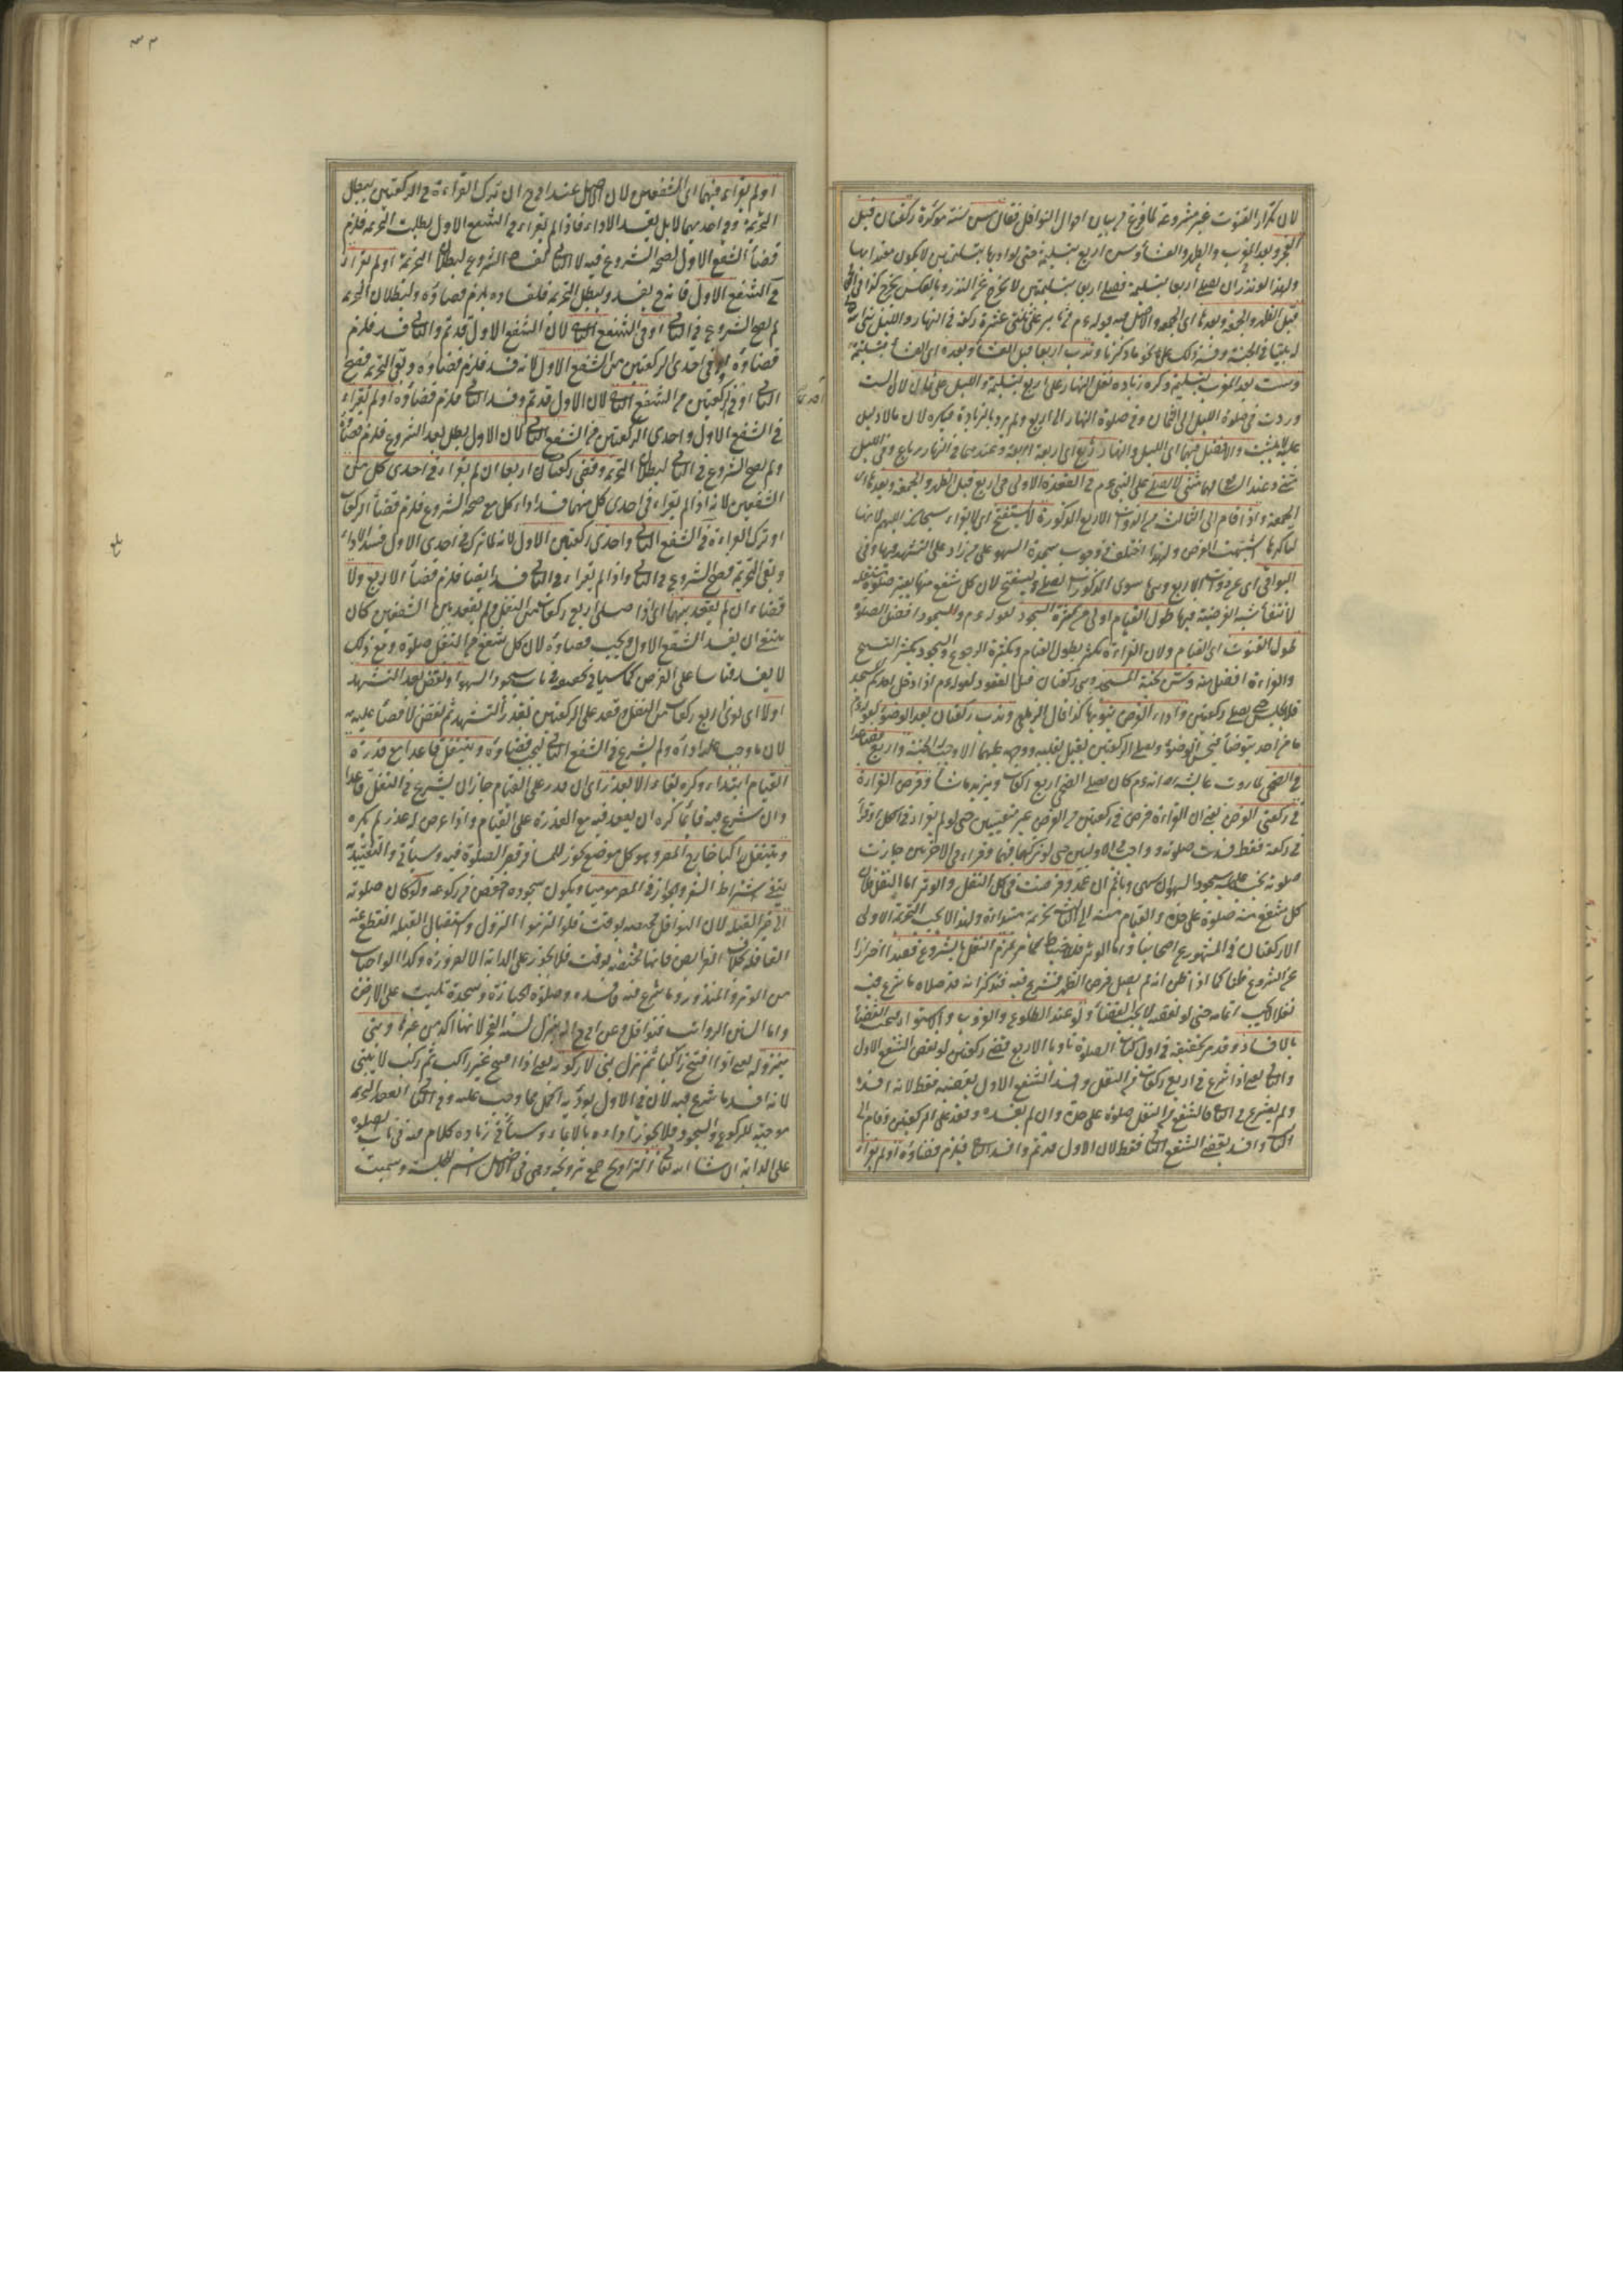 لان تكرار القنوت غير مشروعة لما فرغ من بيان احوال النوافل فقال سن سنة مؤكدة ركعتان قبل
الفجر وبعد المغرب والظهر والعشاء وسن اربع بتسليمة حتى لو اداها بتسليمتين لا يكون معتدا بها
ولهذا لو نذر ان يصلى اربعا بتسليمة فصلى اربعا بتسليمتين لا يخرج عن النذر وبالعكس يخرج كذا في
قبل الظهر والجمعة وبعدها اى الجمعة والاصل فيه قوله عم من ثابر على ثنتى عشرة ركعة في النهار والليل بنى الله
له بيتا في الجنة وندب اربعا قبل العشاء وبعده اى العشاء بتسليمة
وست بعد المغرب بتسليمة وكره زيادة نفل النهار على اربع بتسليمة والليل على ثمان لان السنة
وردت في صلوة الليل الى الثمان وفي صلوة النهار الى اربع ولم يرد بالزيادة فيكره لان ما لا دليل
عليه لا يثبت والافضل فيهما اى الليل والنهار رباع اى اربعة اربعة وعندهما في النهار رباع وفي الليل
مثنى وعند الشافعي فيهما مثنى لا يصلى على النبي عم في القعدة الاولى في اربع قبل الظهر والجمعة وبعدها اى
الجمعة واذا قام الى الثالثة من ذوات الاربع المذكورة لا يستفتح اى لا يقراء سبحانك اللهم لانها
لتأكدها اشبهت الفرض ولهذا اختلف في وجوب سجدة السهو على من زاد على التشهد فيها وفي
البواقى اى من ذوات الاربع وهى سوى المذكورات يصلى ويستفتح لان كل شفع منها يعتبر صلوة مستقلة
لانتفاء شبه الفرضية فيها طول القيام اولى من كثرة السجود لقوله عم افضل الصلوة
طول القنوت اى القيام ولان القراءة تكثر بطول القيام وبكثرة الركوع والسجود يكثر التسبيح
والقراءة افضل منه وسن تحية المسجد وهى ركعتان قبل القعود لقوله عم اذا دخل احدكم المسجد
فلا يجلس حتى يصلى ركعتين واداء الفرض ينوبها كذا قال الزيلعي وندب ركعتان بعد الوضوء لقوله عم
ما من احد يتوضأ فيحسن الوضوء ويصلى الركعتين يقبل بقلبه ووجهه عليهما الا وجبت له الجنة واربع فصاعدا
في الضحى لما روت عايشة انه عم كان يصلى الضحى اربع ركعات ويزيد ما شاء وفرض القراءة
في ركعتى الفرض يعنى ان القراءة فرض في ركعتين من الفرض غير متعينين حتى لو لم يقراء في الكل او قرأ
في ركعة فقط فسدت صلوته وواجب في الاوليين حتى لو تركها فيهما وقراء في الاخريين جازت
صلوته يجب عليه سجود السهو ان سهى ويأثم ان عمد وفرضت في كل النفل والوتر اما النفل فلان
كل شفع منه صلوة على حدة والقيام منه الى الثالثة كتحريمة مبتدأة ولهذا لا يجب بالتحريمة الاولى
الا ركعتان في المشهور عن اصحابنا واما الوتر فللاحتياط كما مر لزم النفل بالشروع قصدا احترازا
عن الشروع ظنا كما اذا ظن انه لم يصل فرض الظهر فشرع فيه فتذكر انه قد صلاه ما شرع فيه
نفلا لا يجب اتمامه حتى لو نقضه لا يجب القضاء ولو عند الطلوع والغروب والاستواء يجب القضاء
بالافساد وقد مر تحقيقه في اول كتاب الصلوة ناويا الاربع قضى ركعتين لو نقض الشفع الاول
والثاني يعنى اذا شرع في اربع ركعات من النفل وافسد الشفع الاول يقضيه فقط لانه افسده
ولم يشرع في الثاني فالشفع من النفل صلوة على حدة وان لم يفسده وقعد على الركعتين وقام الى
الثاني وافسد يقضى الشفع الثاني فقط لان الاول قد تم وافسد الثاني فيلزم قضاؤه او لم يقراء
او لم يقراء فيهما اى الشفعين ولان الاصل عند ابى ح ان ترك القراءة في الركعتين يبطل
التحريمة وفي احديهما لا بل يفسد الاداء فاذا لم يقراء في الشفع الاول بطلت التحريمة فلزم
قضاء الشفع الاول لصحة الشروع فيه لا الثاني لعدم الشروع لبطلان التحريمة او لم يقراء
في الشفع الاول فانه ح يفسد ويبطل التحريمة فلفساده يلزم قضاؤه ولبطلان التحريمة
لم يصح الشروع في الثاني او في الشفع الثاني لان الشفع الاول قد تم والثاني فسد فلزم
قضاؤه او في احدى الركعتين من الشفع الاول لانه فسد فلزم قضاؤه وبقى التحريمة فصح
الثاني او في ركعتين من الشفع الثاني لان الاول قد تم وفسد الثاني فلزم قضاؤه او لم يقراء
في الشفع الاول واحدى الركعتين من الشفع الثاني لان الاول بطل بعد الشروع فلزم قضاؤه
ولم يصح الشروع في الثاني لبطلان التحريمة وقضى ركعات اربعا ان لم يقراء في احدى كل من
الشفعين لانه اذا لم يقراء في احدى كل منهما فسد اداء كل مع صحة الشروع فلزم قضاء الركعات
او ترك القراءة في الشفع الثاني واحدى ركعتين الاول لانه لما ترك في احدى الاول فسد الاداء
وبقى التحريمة فصح الشروع في الثاني واذا لم يقراء في الثاني فسد ايضا فلزم قضاء الاربع ولا
قضاء ان لم يقعد بينهما اى اذا صلى اربع ركعات من النفل ولم يقعد بين الشفعين وكان
ينبغى ان يفسد الشفع الاول ويجب قضاؤه لان كل شفع من النفل صلوة ومع ذلك
لا يفسد قياسا على الفرض كما سيأتى تحقيقه في باب سجود السهو او نقض بعد التشهد
اولا اى نوى اربع ركعات من النفل وقعد على الركعتين بقدر التشهد ثم نقض لا قضاء عليه
لان ما وجب عليه اداه ولم يشرع في الشفع الثاني ليجب قضاؤه ويتنفل قاعدا مع قدرة
القيام ابتداء وكره بقاء الا بعذر اى ان قدر على القيام جاز ان يشرع في النفل قاعدا
وان شرع فيه قائما كره ان يقعد فيه مع القدرة على القيام واذا عرض له عذر لم يكره
ويتنفل راكبا خارج المصر وهو كل موضع يجوز للمسافر قصر الصلوة فيه وسيأتى والتقييد
ينفى اشتراط السفر والجواز في المصر موميا ويكون سجوده اخفض من ركوعه ولو كان صلوته
الى غير القبلة لان النوافل غير مختصة بوقت فلو التزموا النزول واستقبال القبلة انقطع عنه
القافلة بخلاف الفرائض فانها مختصة بوقت فلا يجوز على الدابة الا لضرورة وكذا الواجبات
من الوتر والمنذور وما شرع فيه فافسده وصلوة الجنازة وسجدة تليت على الارض
واما السنن الرواتب فنوافل وعن ابى ح انه ينزل لسنة الفجر لانها اكد من غيرها وبنى
بنزوله يعنى اذا افتتح راكبا ثم نزل بنى لا ركوبه يعنى اذا افتتح غير راكب ثم ركب لا يبنى
لانه افسد ما شرع فيه لان في الاول يؤديه اكمل مما وجب عليه وفي الثاني انعقد التحريمة
موجبة للركوع والسجود فلا يجوز اداءه بالايماء وسيأتى زيادة كلام فيه في باب الصلوة
على الدابة ان شاء الله تعالى التراويح جمع ترويحة وهى في الاصل اسم للجلسة وسميت
بلغ